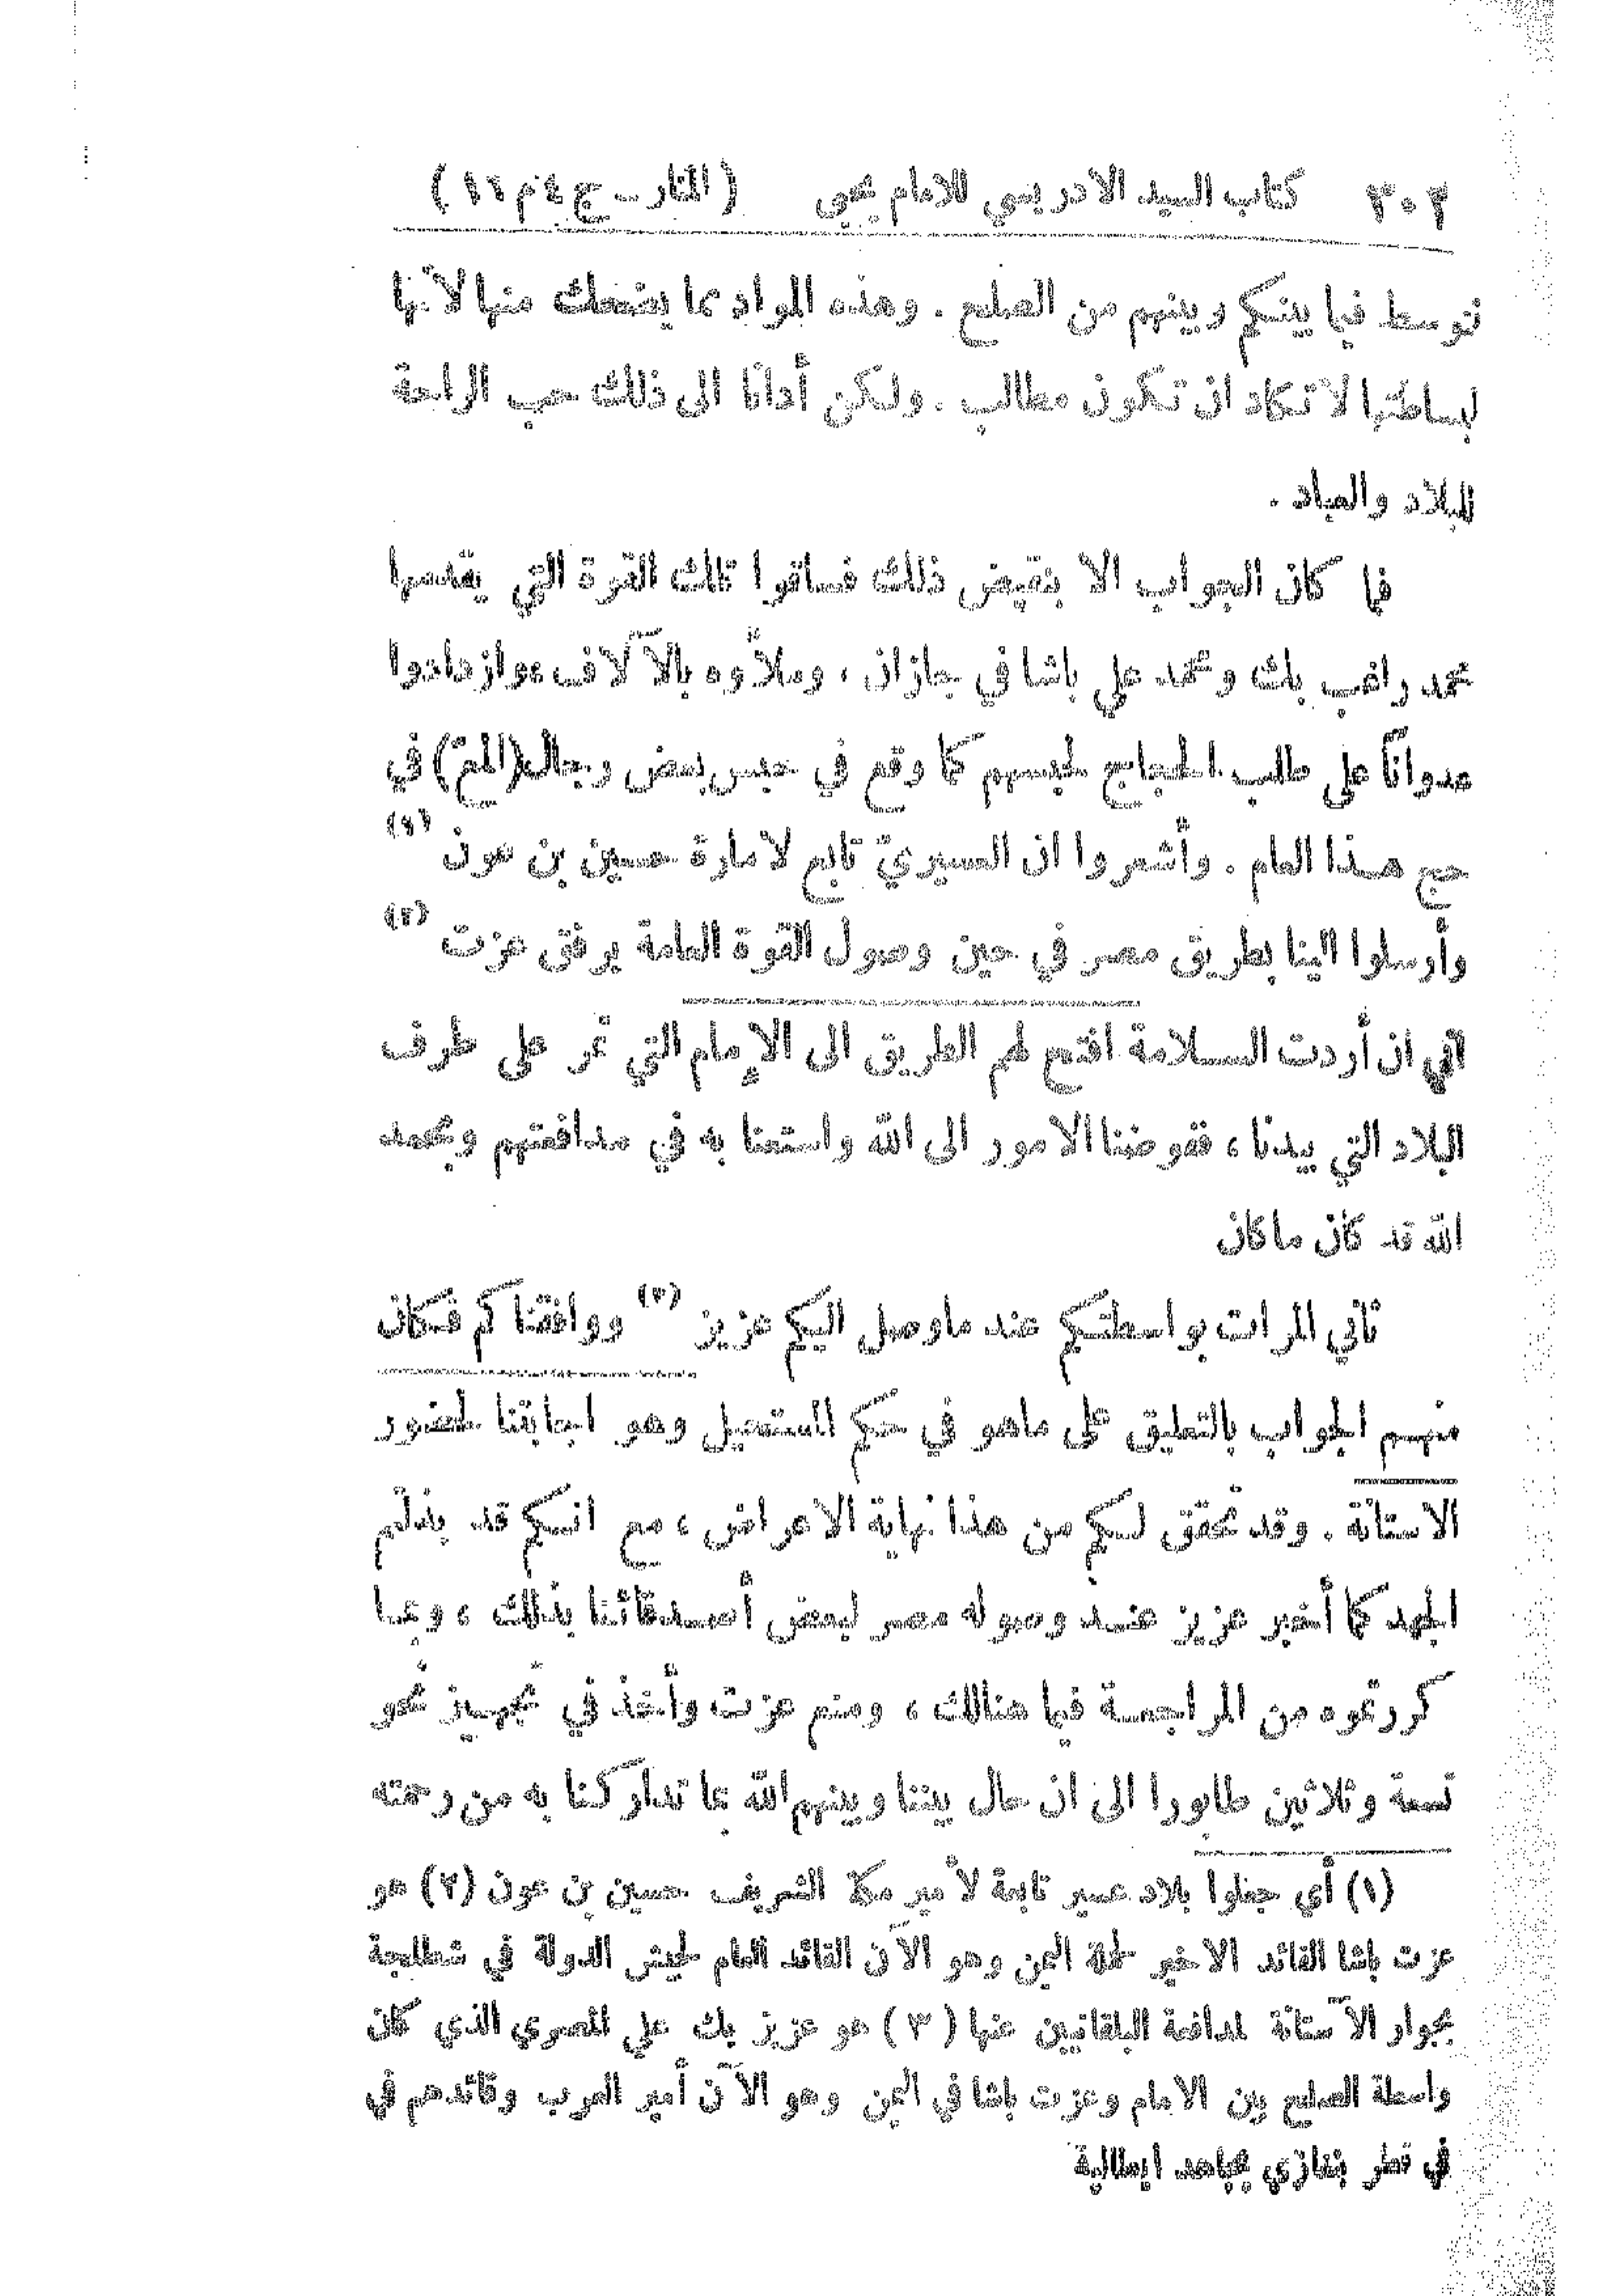 ٣٠٢ كتاب السيد الادريسي للامام يحيى (المنار – ج ٤ م ١٦)
توسط فيما بينكم وبينهم من الصلح . وهذه المواد مما يضحك منها لأنها
لبساطتها لا تكاد ان تكون مطالب . ولكن أدانا الى ذلك حب الراحة
للبلاد والعباد .
فما كان الجواب الا بنقيض ذلك فساقوا تلك القوة التي يقدمها
محمد راغب بك ومحمد علي باشا في جازان ، وملأوه بالآلاف، وازدادوا
عدوانًا على طلب الحجاج لحبسهم كما وقع في حبس بعض رجال (المع) في
حج هذا العام . وأشعروا ان العسيريّ تابع لامارة حسين بن عون (١)
وأرسلوا الينا بطريق مصر في حين وصول القوة العامة برفق عزت (٢)
اني ان أردت السلامة افتح لهم الطريق الى الإمام التي تمر على طرف
البلاد التي بيدنا ، ففوضنا الامور الى الله واستعنا به في مدافعتهم وبحمد
الله قد كان ما كان
ثاني المرات بواسطتكم عند ما وصل اليكم عزيز (٣) ووافقنا كم فكان
منهم الجواب بالتعليق على ماهو في حكم المستحيل وهو اجابتنا لحضور
الاستانة . وقد تحقق لكم من هذا نهاية الاعراض ، مع انكم قد بذلتم
الجهد كما أخبر عزيز عند وصوله مصر لبعض أصدقائنا بذلك ، وعما
كررتموه من المراجعة فيما هنالك ، ومنع عزت وأخذ في تجهيز نحو
تسعة وثلاثين طابورا الى ان حال بيننا وبينهم الله بما تداركنا به من رحمته
(١) أي جعلوا بلاد عسير تابعة لأمير مكة الشريف حسين بن عون (٢) هو
عزت باشا القائد الاخير لحملة اليمن وهو الآن القائد العام لجيش الدولة في شطلجة
بجوار الآستانة لمدافعة البلقانيين عنها (٣) هو عزيز بك علي المصري الذي كان
واسطة الصلح بين الامام وعزت باشا في اليمن وهو الآن أمير العرب وقائدهم في
في قطر بنغازي يجاهد ايطالية